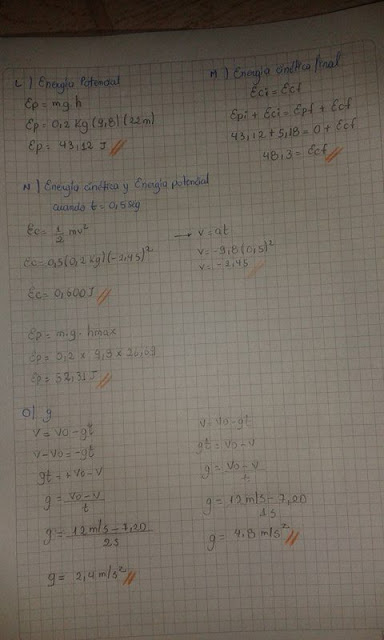 L) Energía Potencial
Ep = m.g.h
Ep = 0,2 Kg (9,8) (22m)
Ep = 43,12 J
M) Energía cinética final
Eci = Ecf
Epi + Eci = Epf + Ecf
43,12 + 5,18 = 0 + Ecf
48,3 = Ecf
N) Energía cinética y Energía potencial
cuando t = 0,5seg
Ec = 1/2 mv²
Ec = 0,5 (0,2 Kg) (-2,45)²
Ec = 0,600 J
→ v = at
v = -9,8 (0,5)²
v = -2,45
Ep = m.g. hmax
Ep = 0,2 x 9,8 x
Ep =
O) g
v = vo - gt
v - vo = -gt
gt = + vo - v
g = vo - v / t
g = 12 m/s - 7,00 / 2s
g = 2,4 m/s²
v = vo - gt
gt = vo - v
g = vo - v / t
g = 12 m/s - 7,00 / 1s
g = 4,8 m/s²